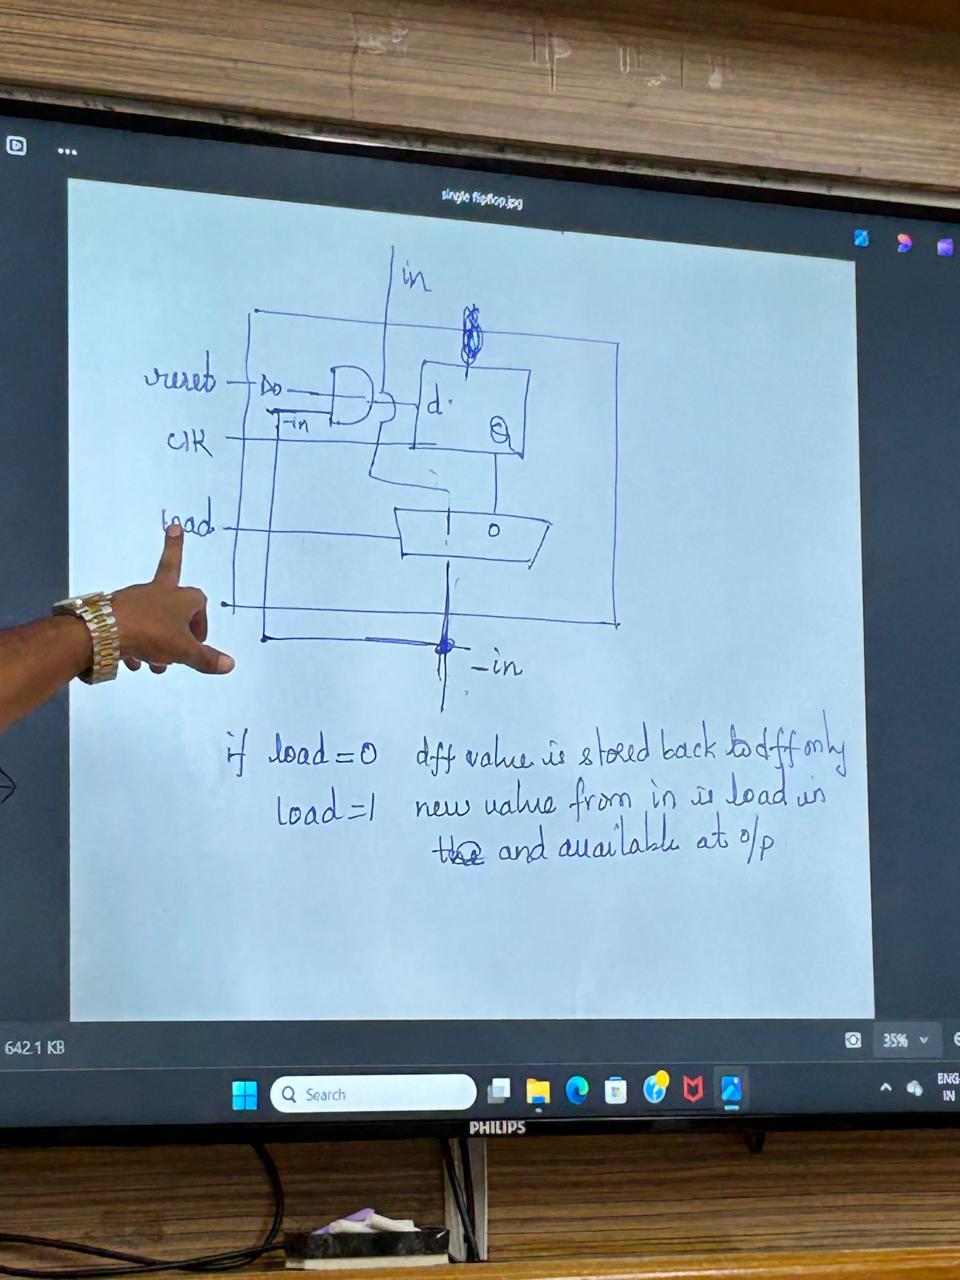 single flipflop.jpg
in
reset
Do
d
-in
Q
clk
load
0
-in
if load=0 dff value is stored back to dff only
load=1 new value from in is load in
and available at o/p
642.1 KB
35%
Search
ENG
IN
PHILIPS